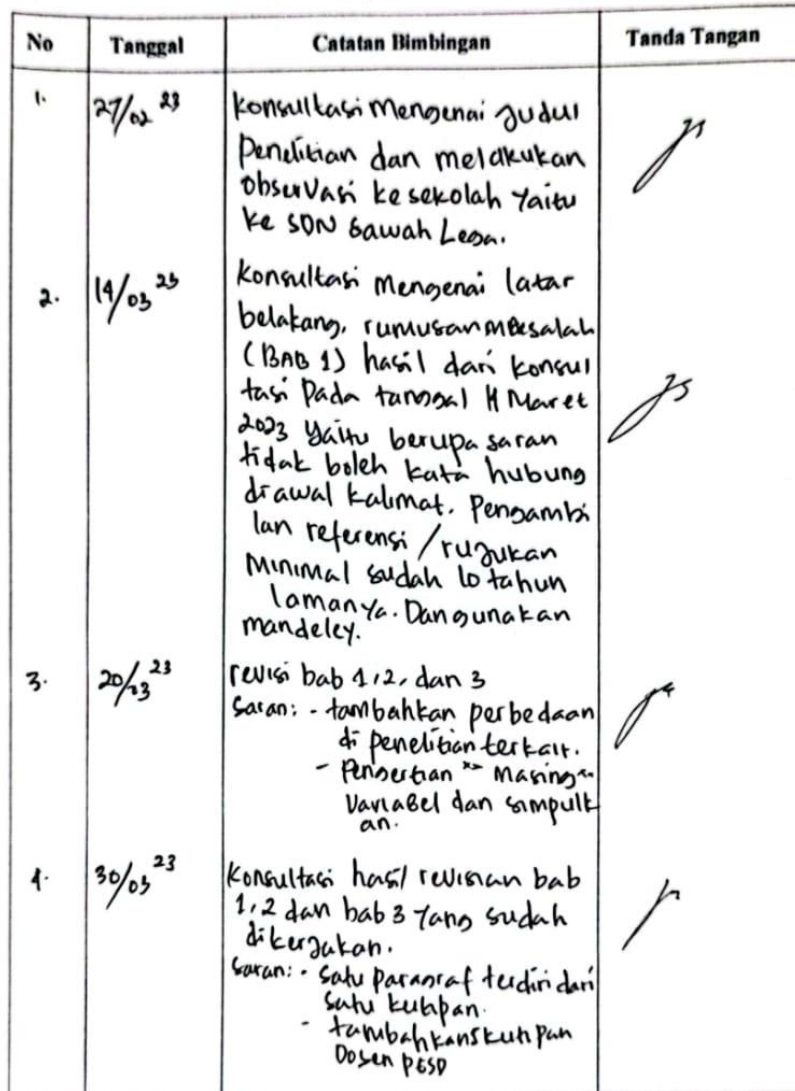 No Tanggal Catatan Bimbingan Tanda Tangan
1. 27/02 23 Konsultasi Mengenai Judul
Penelitian dan melakukan
observasi kesekolah Yaitu
ke SDN Sawah Lega.
2. 14/03 23 Konsultasi Mengenai latar
belakang, rumusan masalah
(BAB 1) hasil dari konsul
tasi Pada tanggal 14 Maret
2023 Yaitu berupa saran
tidak boleh kata hubung
diawal kalimat. Pengambi
lan referensi / rujukan
Minimal sudah 10 tahun
lamanya. Dan gunakan
mandeley.
3. 20/03 23 revisi bab 1,2, dan 3
Saran: - tambahkan perbedaan
di penelitian terkait.
- Pengertian Masing
Variabel dan simpulk
an.
4. 30/03 23 Konsultasi hasil revisian bab
1,2 dan bab 3 Yang sudah
dikerjakan.
Saran: - Satu Paragraf terdiri dari
Satu kutipan.
- tambahkan kutipan
Dosen PGSD